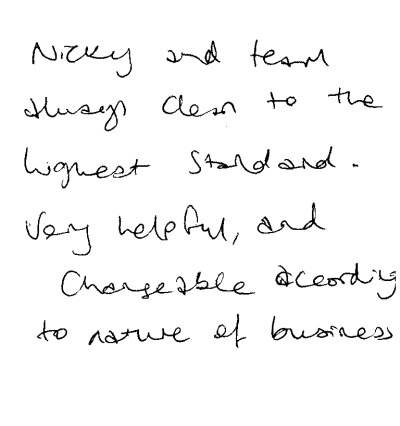 Nicky and team
always clean to the
highest standard.
Very helpful, and
Changeable according
to nature of business